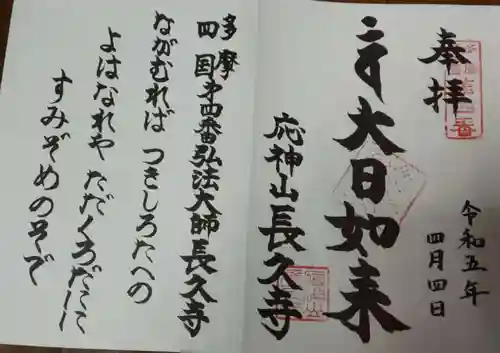 奉拝
令和五年
四月四日
大日如来
応神山長久寺
多摩四国第四番弘法大師長久寺
ながむれば つきしろたへの
よはなれや ただくろだにに
すみぞめのそで